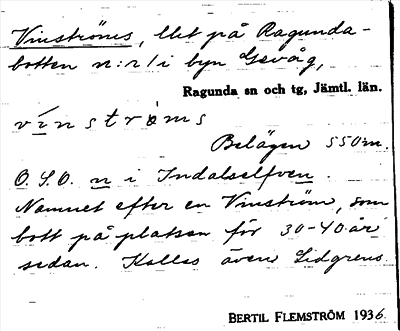 Vinströms, Ubt på Ragunda-
botten n:r 1 i byn Gevåg,
Ragunda sn och tg, Jämtl. län.
vinströms
Belägen 550 m.
O.S.O. n i Indalselfven.
Namnet efter en Vinström, som
bott på platsen för 30-40 år
sedan. Kallas även Lidgrens.
BERTIL FLEMSTRÖM 1936.